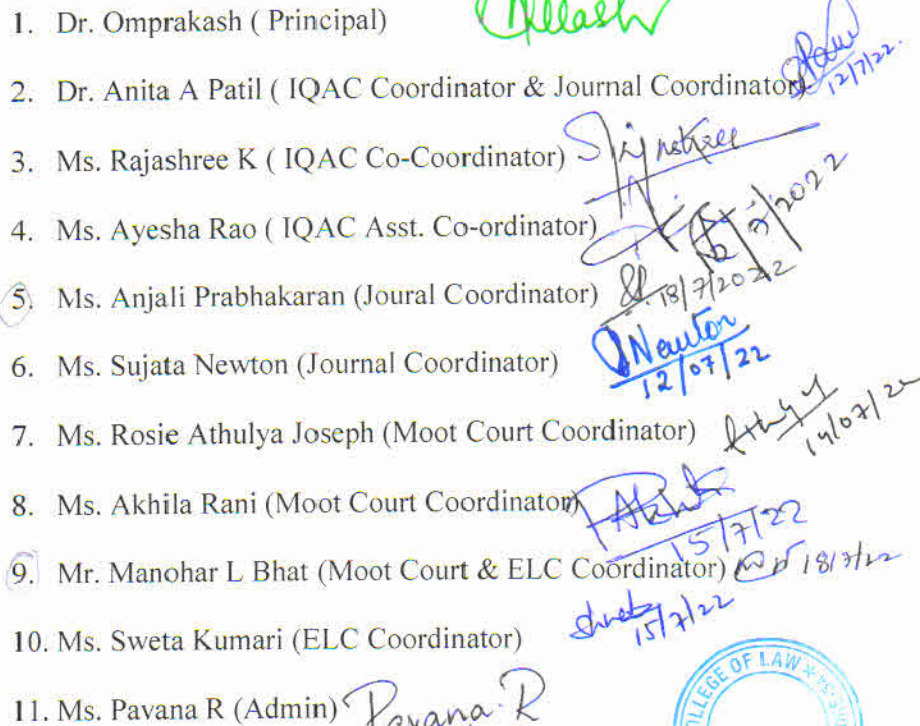 1. Dr. Omprakash ( Principal)
2. Dr. Anita A Patil ( IQAC Coordinator & Journal Coordinator) 12/7/22.
3. Ms. Rajashree K ( IQAC Co-Coordinator)
4. Ms. Ayesha Rao ( IQAC Asst. Co-ordinator)
5. Ms. Anjali Prabhakaran (Joural Coordinator) 18/7/2022
6. Ms. Sujata Newton (Journal Coordinator) Newton 12/07/22
7. Ms. Rosie Athulya Joseph (Moot Court Coordinator) 14/07/22
8. Ms. Akhila Rani (Moot Court Coordinator) 15/7/22
9. Mr. Manohar L Bhat (Moot Court & ELC Coordinator) 18/7/22
10. Ms. Sweta Kumari (ELC Coordinator) 15/7/22
11. Ms. Pavana R (Admin) Pavana.R
OF LAW